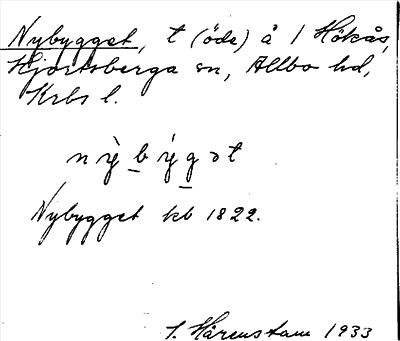 Nybygget, t (öde) å 1 Hökås,
Hjortsberga sn, Allbo hd,
Krbs l.
nỳb ýgət
Nybygget kb 1822.
Hårenstam 1933